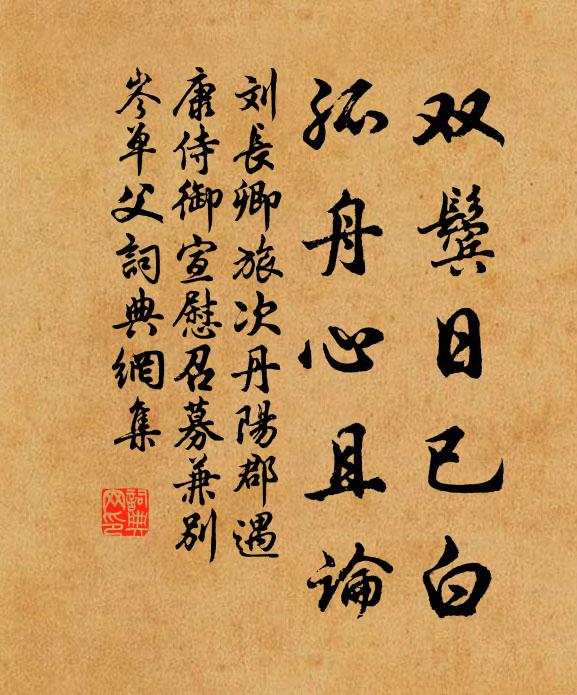 双鬓日已白
孤舟心且论
刘長卿旅次丹陽郡遇
康侍御宣慰召募兼别
岑单父詞典網集
詞典
网印